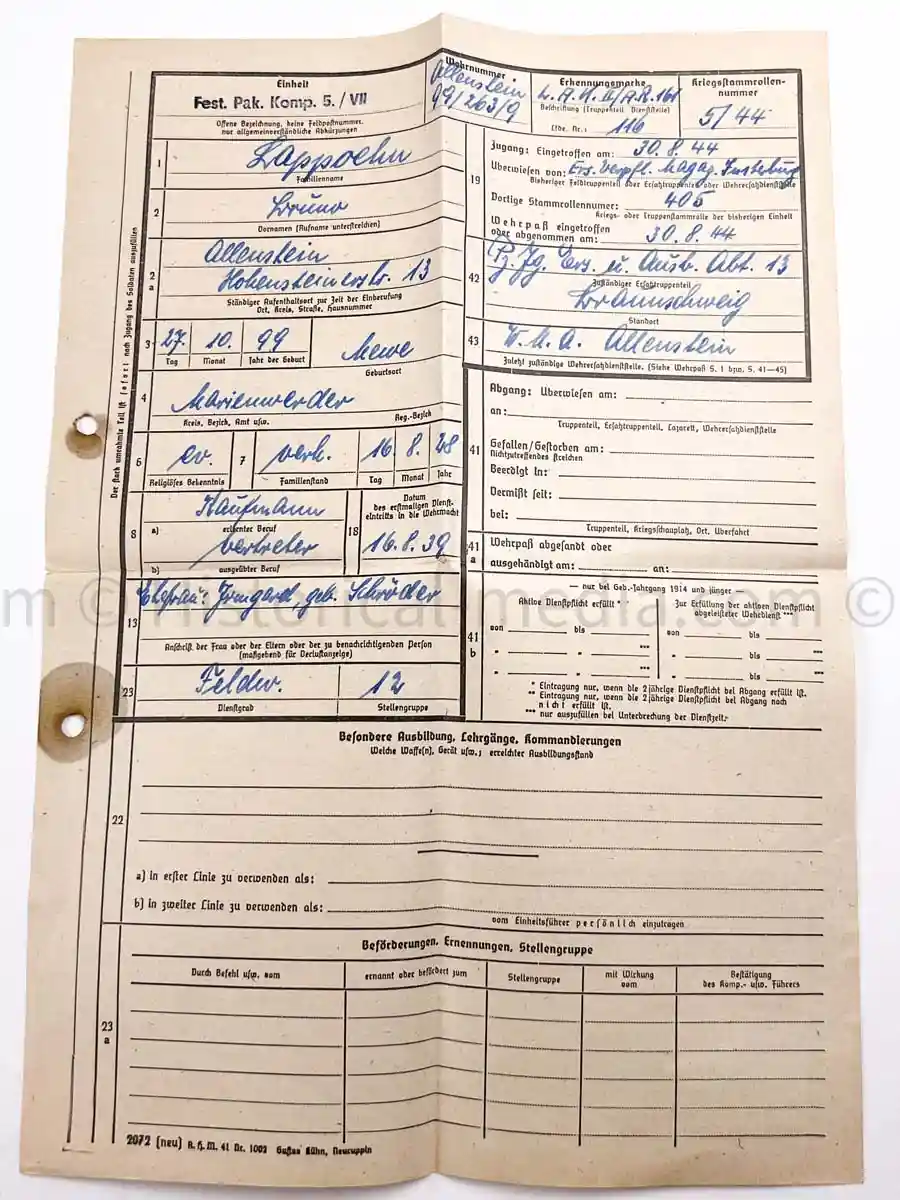 Einheit
Fest. Pak. Komp. 5. / VII
Offene Bezeichnung, keine Feldpostnummer,
nur allgemeinverständliche Abkürzungen
Wehrnummer
Allenstein
99/263/9
Erkennungsmarke
L.A.K. II/A.R. 161
Beschriftung (Truppenteil, Dienststelle)
Lfde. Nr.: 116
Kriegsstammrollen-
nummer
5/44
Der stark umrahmte Teil ist sofort nach Zugang des Soldaten auszufüllen
1
Lappoehn
Familienname
2
Bruno
Vornamen (Rufname unterstreichen)
2
a
Allenstein
Hohensteinerstr. 13
Ständiger Aufenthaltsort zur Zeit der Einberufung
Ort, Kreis, Straße, Hausnummer
3
27. 10. 99
Tag Monat Jahr der Geburt
Mewe
Geburtsort
4
Marienwerder
Kreis, Bezirk, Amt usw. Reg.-Bezirk
6
ev.
Religiöses Bekenntnis
7
verh.
Familienstand
16. 8. 28
Tag Monat Jahr
8
Kaufmann
a) erlernter Beruf
Vertreter
b) ausgeübter Beruf
18
Datum
des erstmaligen Dienst-
eintritts in die Wehrmacht
16.8.39
13
Ehefrau: Irmgard, geb. Schröder
Anschrift der Frau oder der Eltern oder der zu benachrichtigenden Person
(maßgebend für Verlustanzeige)
23
Feldw. 12
Dienstgrad Stellengruppe
19
Zugang: Eingetroffen am: 30.8.44
Überwiesen von: Ers. Verpfl. Magaz. Insterburg
Bisheriger Feldtruppenteil oder Ersatztruppenteil oder Wehrersatzdienststelle
Dortige Stammrollennummer: 405
Kriegs- oder Truppenstammrolle der bisherigen Einheit
Wehrpaß eingetroffen
oder abgenommen am: 30.8.44
42
Pz. Jg. Ers. u. Ausb. Abt. 13
Zuständiger Ersatztruppenteil
Braunschweig
Standort
43
W.M.A. Allenstein
Zuletzt zuständige Wehrersatzdienststelle. (Siehe Wehrpaß S. 1 bzw. S. 41—45)
41
Abgang: Überwiesen am:
an:
Truppenteil, Ersatztruppenteil, Lazarett, Wehrersatzdienststelle
Gefallen/Gestorben am:
Nichtzutreffendes streichen
Beerdigt in:
Vermißt seit:
bei:
Truppenteil, Kriegsschauplatz, Ort, Überfahrt
41
a
Wehrpaß abgesandt oder
ausgehändigt am: an:
41
b
— nur bei Geb.-Jahrgang 1914 und jünger —
Aktive Dienstpflicht erfüllt *
von bis
" " ***
" " ***
Zur Erfüllung der aktiven Dienstpflicht
abgeleisteter Wehrdienst ***
von bis
" bis ***
" bis ***
* Eintragung nur, wenn die 2jährige Dienstpflicht bei Abgang erfüllt ist.
** Eintragung nur, wenn die 2jährige Dienstpflicht bei Abgang noch
nicht erfüllt ist.
*** nur auszufüllen bei Unterbrechung der Dienstzeit.
22
Besondere Ausbildung, Lehrgänge, Kommandierungen
Welche Waffe(n), Gerät usw.; erreichter Ausbildungsstand
a) in erster Linie zu verwenden als:
b) in zweiter Linie zu verwenden als:
vom Einheitsführer persönlich einzutragen
23
a
Beförderungen, Ernennungen, Stellengruppe
Durch Befehl usw. vom
ernannt oder befördert zum
Stellengruppe
mit Wirkung
vom
Bestätigung
des Komp.- usw. Führers
2072 (neu) R. H. M. 41 Nr. 1002 Gustav Kühn, Neuruppin